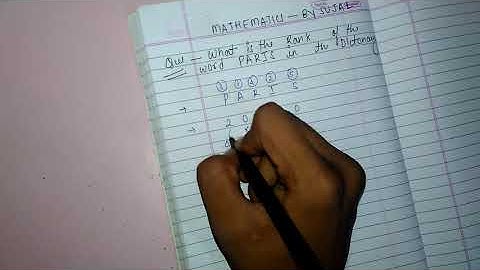 MATHEMATICS - BY SUJAL
Que - What is the Rank of the
word PARIS in the Dictionary
③ ① ④ ② ⑤
→ P A R I S
→ 2 0 0
4